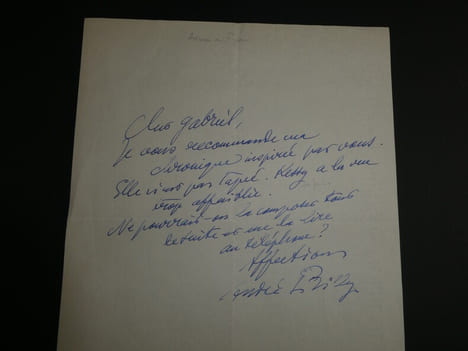 Cher Gabriel,
Je vous recommande ma
chronique inspirée par vous.
Elle n'est pas tapée. Ketty a la vue
trop affaiblie.
Ne pourrait-on la composer tout
de suite et me la lire
au téléphone ?
Affection
André Billy